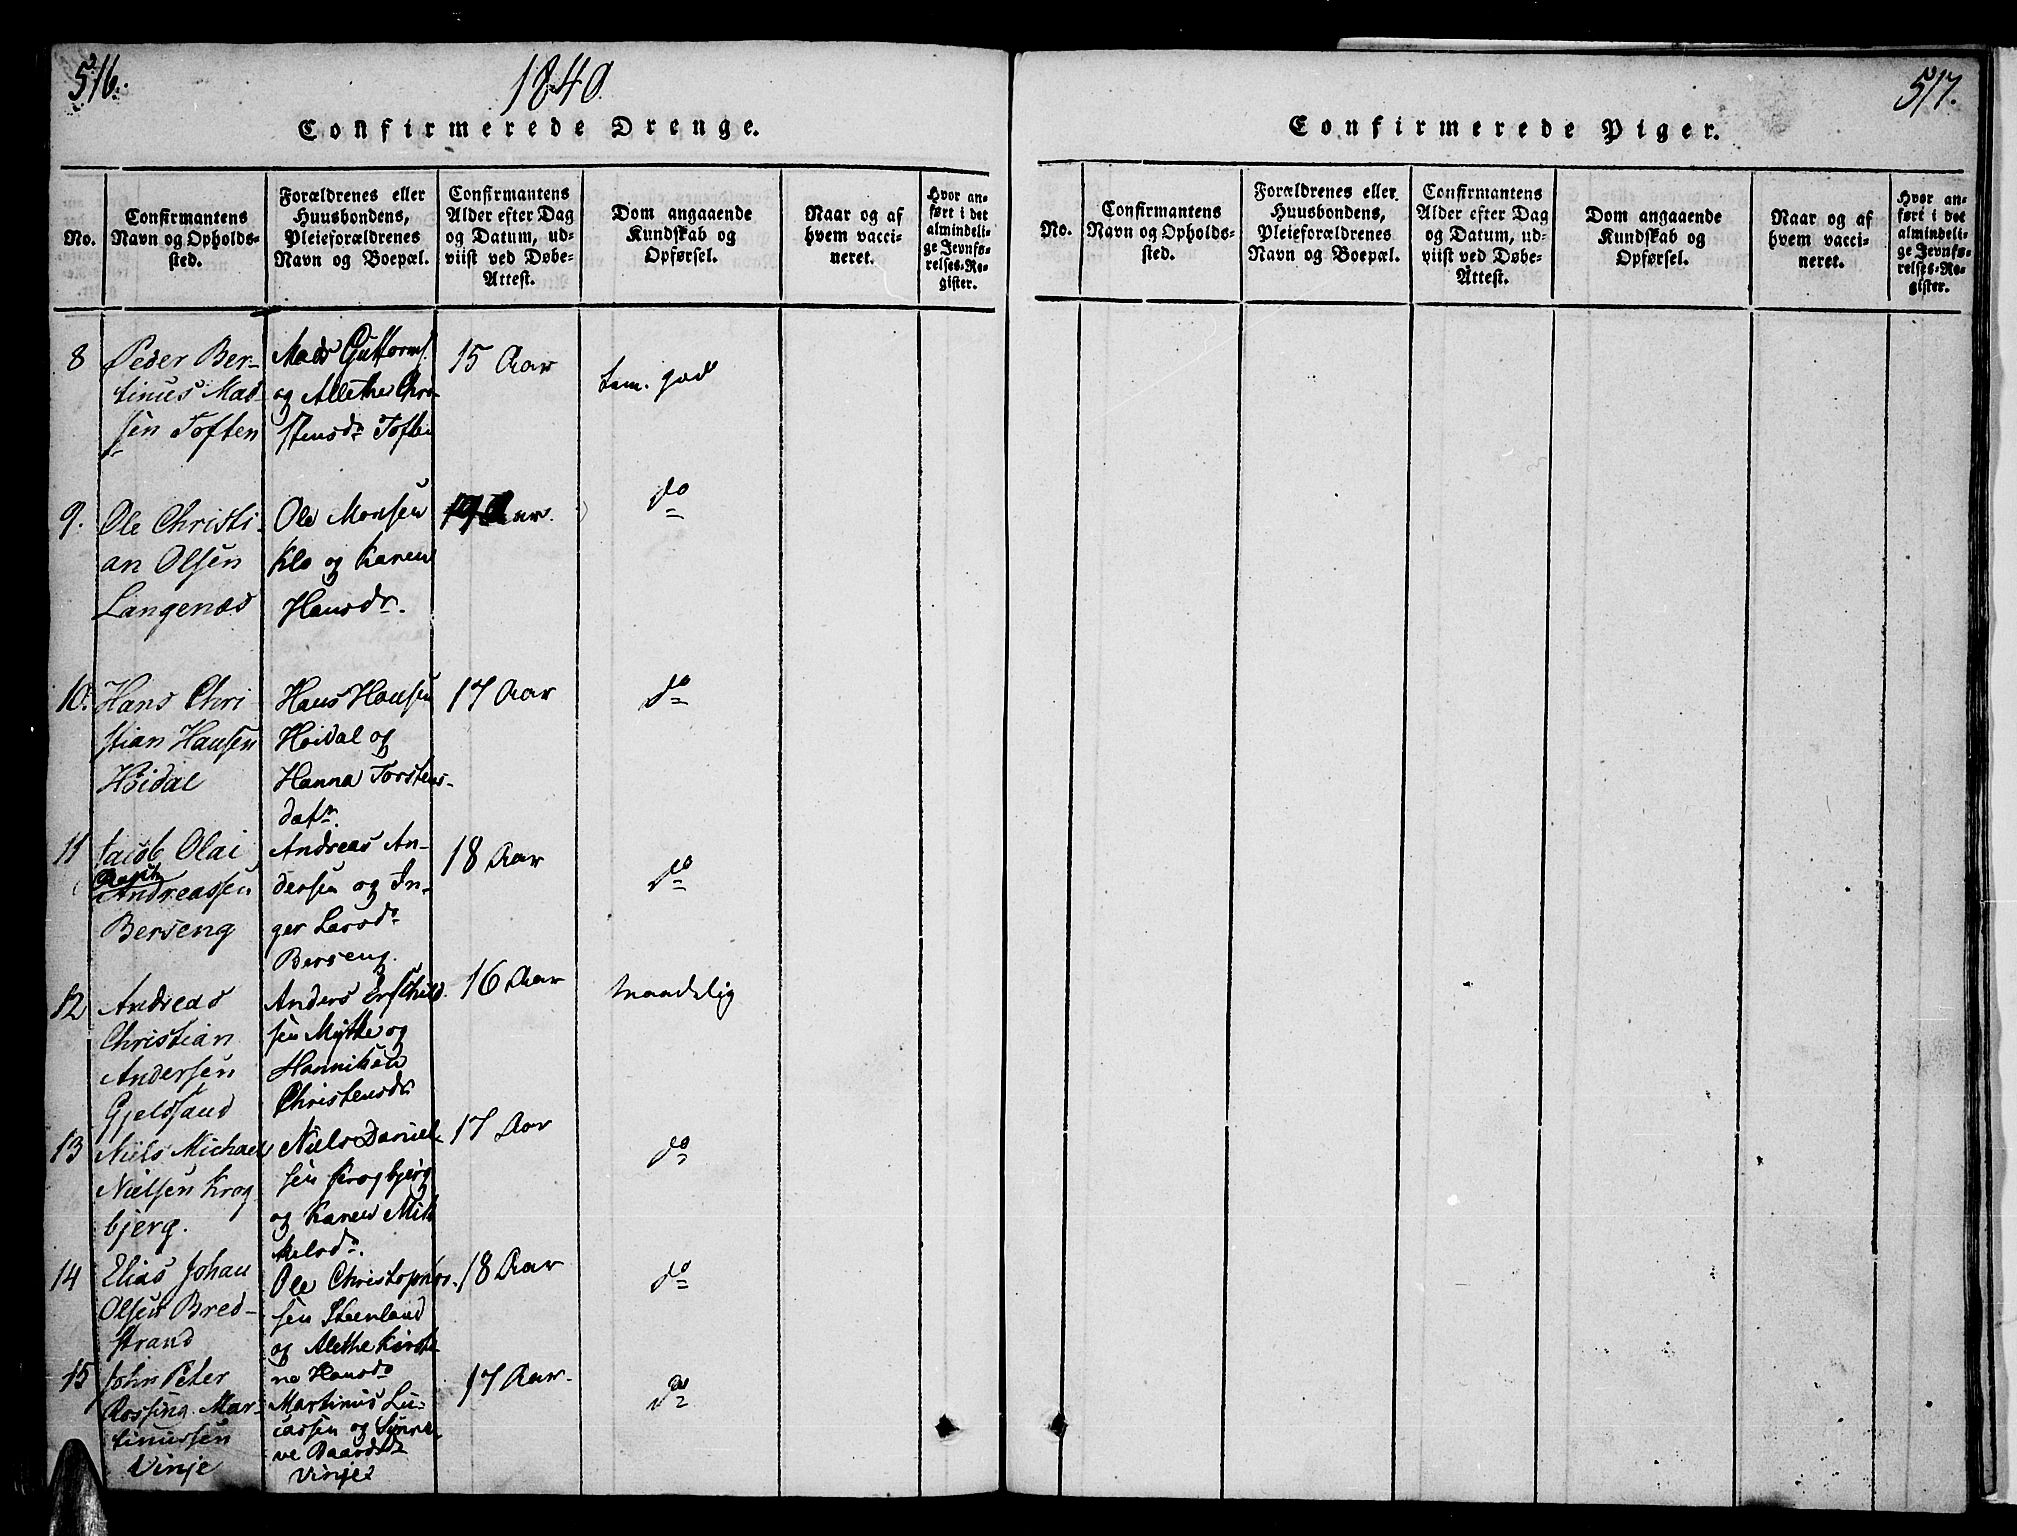 516.
1840.
Confirmerede Drenge.
No.
Confirmantens
Navn og Opholds-
sted.
Forældrenes eller
Huusbondens,
Pleieforældrenes
Navn og Boepæl.
Confirmantens
Alder efter Dag
og Datum, ud-
viist ved Døbe-
Attest.
Dom angaaende
Kundskab og
Opførsel.
Naar og af
hvem vacci-
neret.
Hvor an-
ført i det
almindeli-
ge Jevnfø-
relses-Re-
gister.
8
Peder Ber-
tinus Mad-
sen Toften
Mads Guttorms.
og Allethe Chri-
stensdr Toften
15 Aar
tem. god
9.
Ole Christi-
an Olsen
Langenæs
Ole Monsen
Klo og Karen
Hansdr.
Aar.
do
10.
Hans Chri-
stian Hansen
Høidal
Hans Hansen
Høidal og
Hanna Torstens-
datr.
17 Aar
do
11
Jacob Olai
Andreassen
Berseng
Andreas An-
dersen og In-
ger Larsdr
Berseng.
18 Aar
do
12
Andreas
Christian
Andersen
Gjeldsand
Anders Erschild
sen Mykle og
Henniken
Christensdr
16 Aar
maadelig
13
Niels Michael
Nielsen Krog
bjerg.
Niels Daniel-
sen Krogbjerg
og Karen Mik
kelsdr.
17 Aar
do
14
Elias Johan
Olsen Bred-
strand
Ole Christophers.
sen Steenland
og Alethe Kirsti-
ne Hansdr
18 Aar
do
15
John Peter
Rossing Mar-
tinussen
Vinje
Martinus Lu-
cassen og Synne-
ve Baardsdr
Vinje
17 Aar.
do
517.
Confirmerede Piger.
No.
Confirmantens
Navn og Opholds-
sted.
Forældrenes eller
Huusbondens,
Pleieforældrenes
Navn og Boepæl.
Confirmantens
Alder efter Dag
og Datum, ud-
viist ved Døbe-
Attest.
Dom angaaende
Kundskab og
Opførsel.
Naar og af
hvem vacci-
neret.
Hvor an-
ført i det
almindeli-
ge Jevnfø-
relses-Re-
gister.